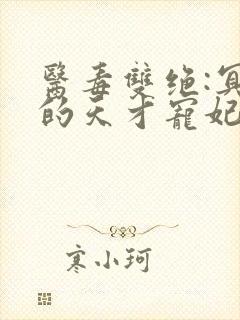 醫毒雙绝:冥
的天才寵妃
寒小珂